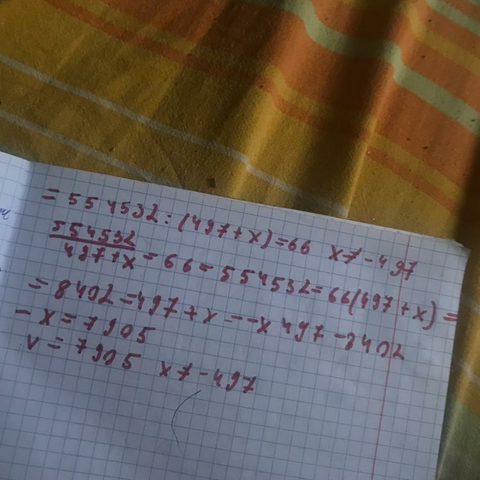 = 554532 : (497+x)=66 x7-497
554532
497+x = 66 = 554532=66(497+x) =
= 8402 =497+x - -x 497 -8402
- x = 7905
v = 7905 x7-497